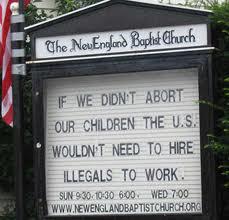 The NewEngland Baptist Church
IF WE DIDN'T ABORT
OUR CHILDREN THE U.S.
WOULDN'T NEED TO HIRE
ILLEGALS TO WORK.
SUN 9:30-10:30 6:00, WED 7:00
WWW.NEWENGLANDBAPTISTCHURCH.ORG